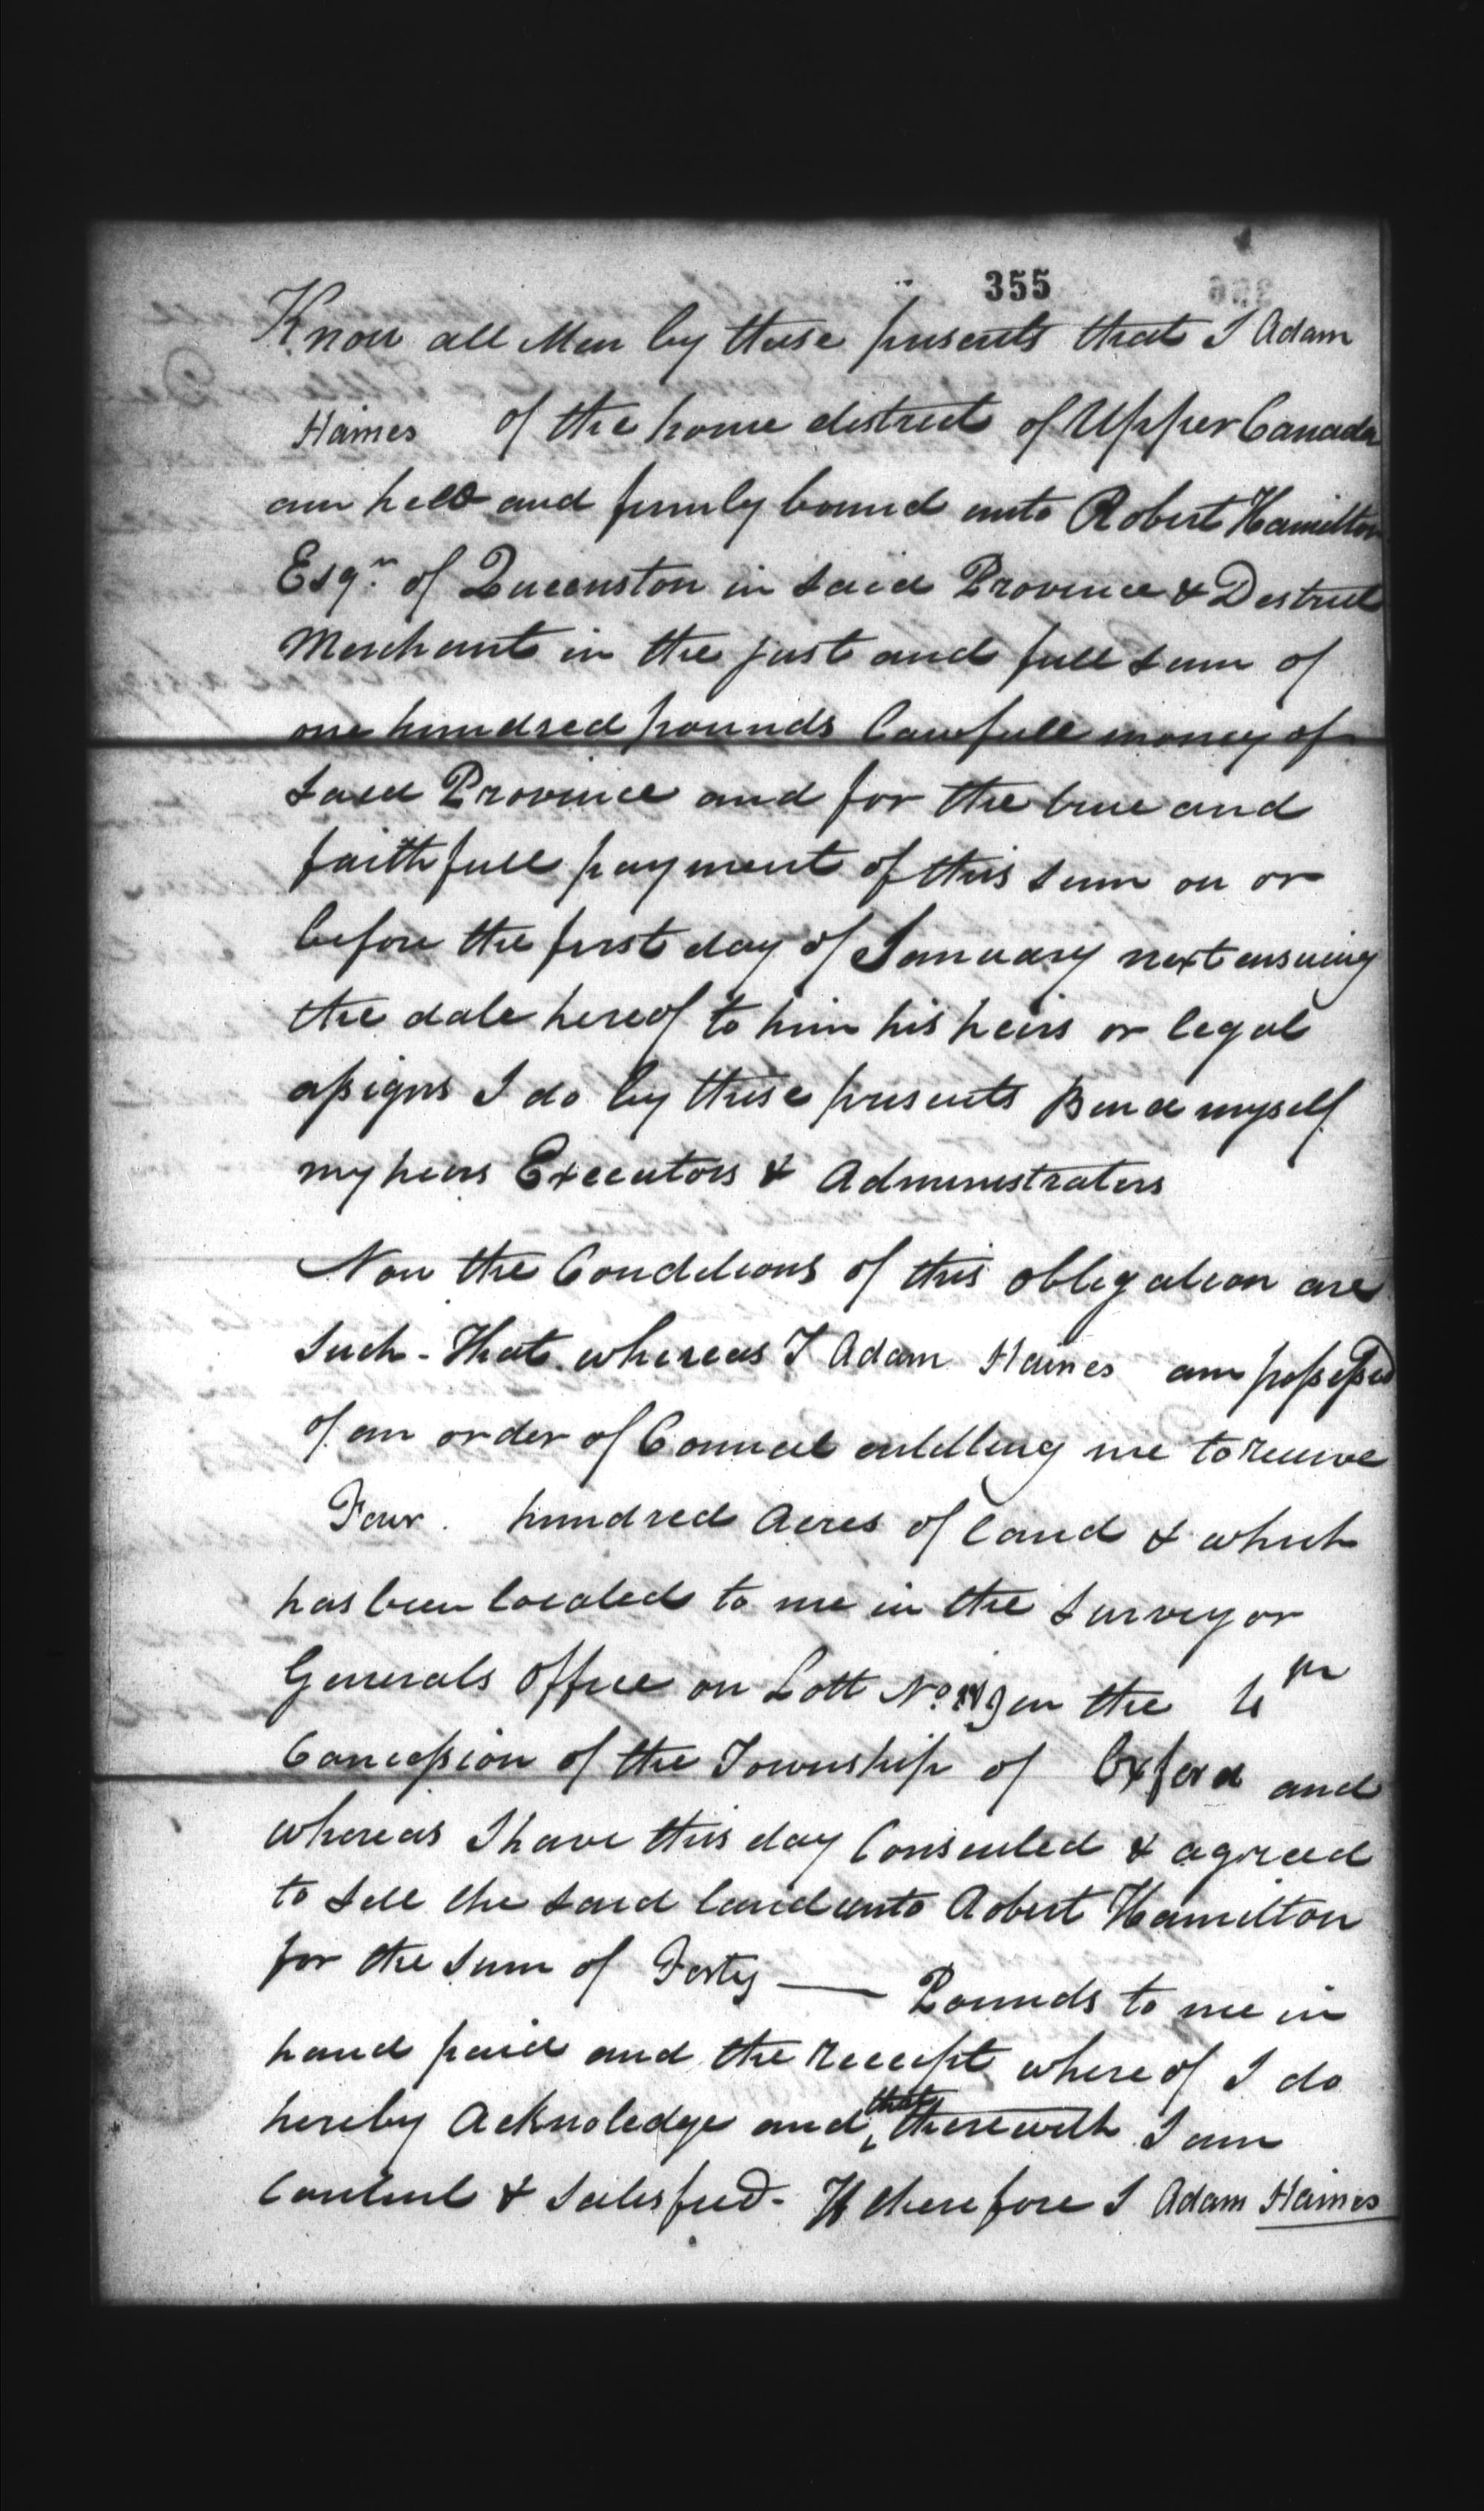 355
Know all Men by these presents that I Adam
Haines of the home district of Upper Canada
am held and firmly bound unto Robert Hamilton
Esqr. of Queenston in said Province & District
Merchant in the just and full sum of
one hundred pounds lawfull money of
said Province and for the true and
faithfull payment of this sum on or
before the first day of January next ensuing
the date hereof to him his heirs or legal
assigns I do by these presents Bind myself
my heirs Executors & Administrators
Now the Conditions of this obligation are
Such - That whereas I Adam Haines am possessed
of an order of Council entitling me to receive
Four hundred Acres of land & which
has been located to me in the surveyor
Generals office on Lott No. 19 in the 4th
Concession of the Township of Oxford and
whereas I have this day Consented & agreed
to sell the said land unto Robert Hamilton
for the sum of Forty — Pounds to me in
hand paid and the receipt where of I do
hereby Acknoledge and that therewith I am
Content & satisfied - If therefore I Adam Haines